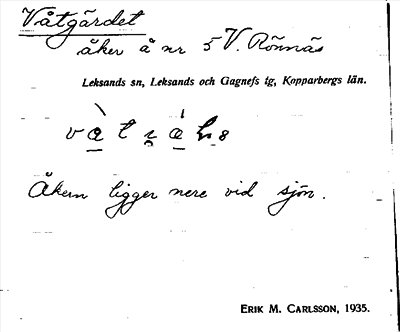 Våtgärdet
åker å nr 5 V. Rönnäs
Leksands sn, Leksands och Gagnefs tg, Kopparbergs län.
Åkern ligger nere vid sjön.
ERIK M. CARLSSON, 1935.